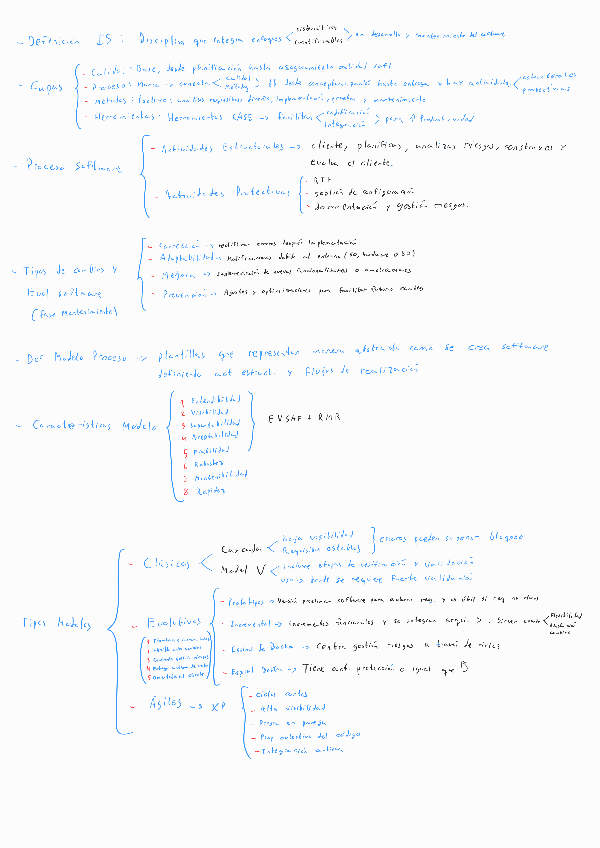 - Definicion IS : Disciplina que integra enfoques sistemáticos cuantificables en desarrollo y mantenimiento del software
- Capas
- Calidad : Base, desde planificación hasta aseguramiento calidad soft
- Proceso : Marco → conecta calidad métodos desde conceptualización hasta entrega y hay actividades estructurales protectoras
- Métodos : Técnicas, análisis requisitos, diseño, implementación, pruebas y mantenimiento
- Herramientas : Herramientas CASE → facilitan planificación integración para ↑ Productividad
- Proceso Software
- Actividades Estructurales → cliente, planificas, analizas riesgos, construyes y evalua el cliente.
- Actividades Protectoras
- RTF
- gestión de configuración
- documentación y gestión riesgos.
- Tipos de cambios y Evol software (Fase Mantenimiento)
- Corrección → rectificar errores después implementación
- Adaptabilidad → Modificaciones debido al entorno (SO, hardware o BD)
- Mejora → Implementación de nuevas funcionalidades o ampliaciones
- Prevención → Ajustes y optimizaciones para facilitar futuros cambios
- Def Modelo Proceso → plantillas que representan manera abstracta como se crea software
definiendo act estruct. y flujos de realización
- Características Modelo
1 Entendibilidad
2 Visibilidad
3 Soportabilidad
4 Aceptabilidad
5 Fiabilidad
6 Robustez
7 Mantenibilidad
8 Rapidez
EVSAF + RMR
Tipos Modelos
- Clásicos
Cascada
baja visibilidad
Requisitos estables
errores pueden suponer bloqueo
Model V
incluye etapas de verificación y validación
uso → donde se requiere fuerte validación
- Evolutivos
- Prototipos → Versión preliminar software para aclarar req. y es útil si req. no claros
- Incremental → Incrementos funcionales y se integran
- Espiral de Boehm → Centra gestión riesgos a través de ciclos
- Tiene act. protección a igual que
- Ágiles → XP
- Ciclos cortos
- Alta visibilidad
- Progra en parejas
- Prop colectiva del código
- Integración continua